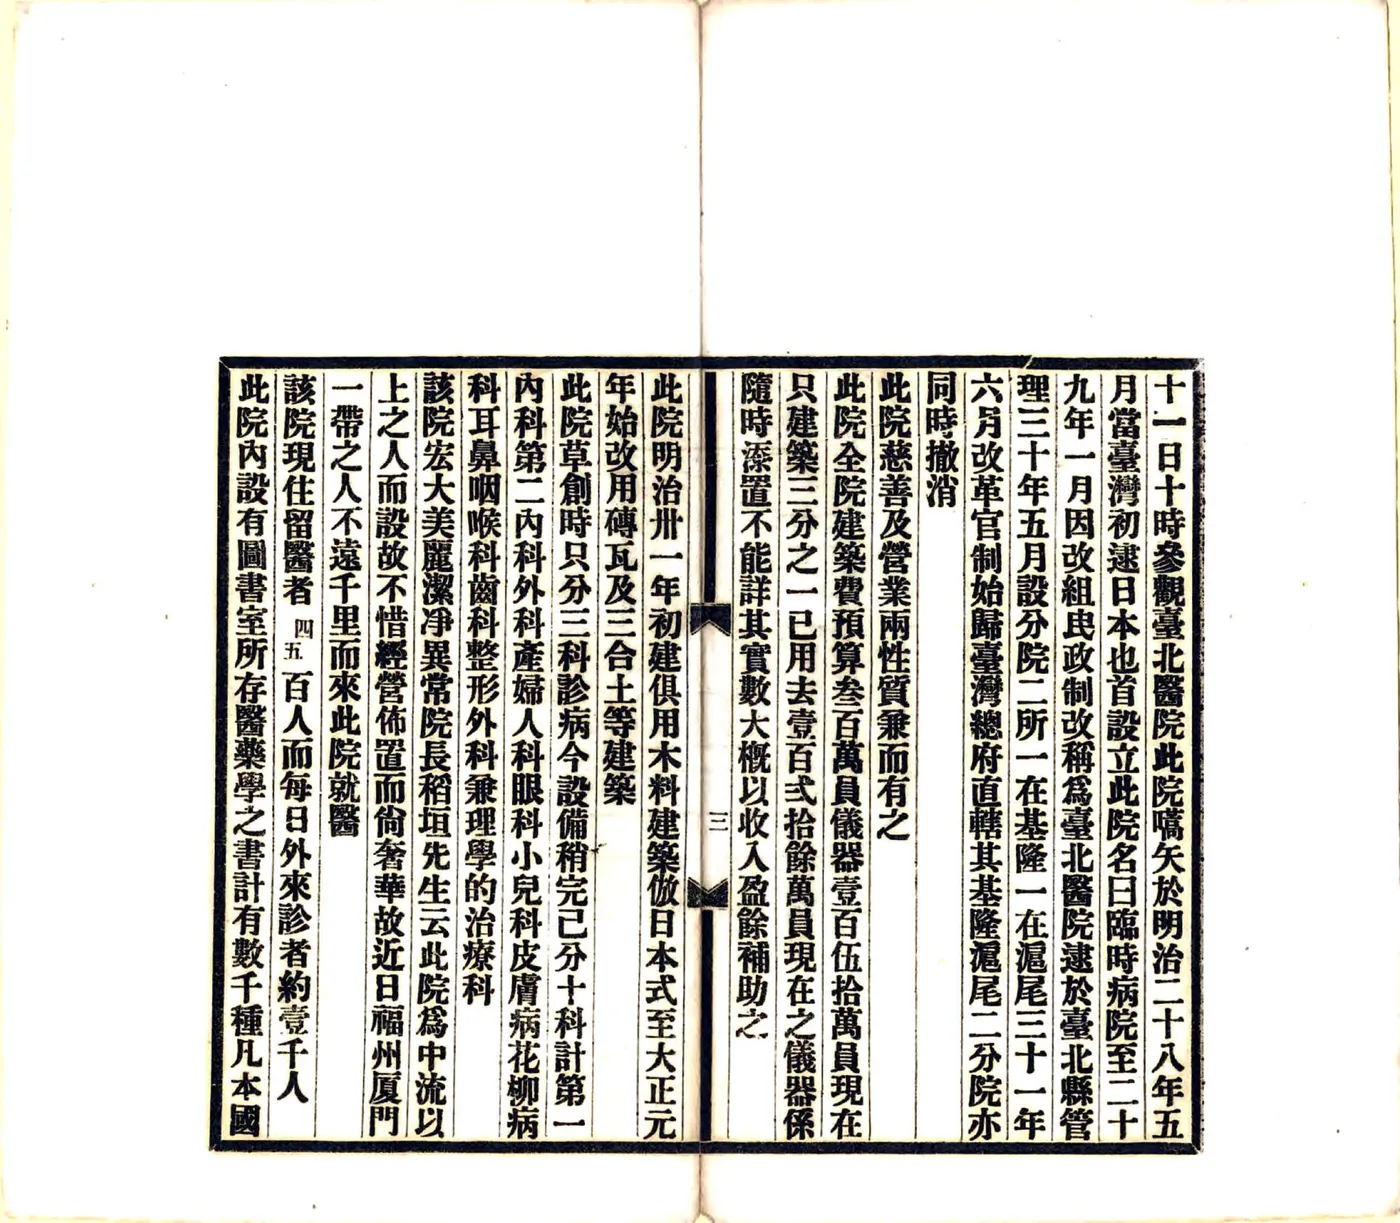 十一日十時參觀臺北醫院此院嚆矢於明治二十八年五
月當臺灣初逮日本也首設立此院名曰臨時病院至二十
九年一月因改組民政制改稱爲臺北醫院逮於臺北縣管
理三十年五月設分院二所一在基隆一在滬尾三十一年
六月改革官制始歸臺灣總府直轄其基隆滬尾二分院亦
同時撤消
此院慈善及營業兩性質兼而有之
此院全院建築費預算叁百萬員儀器壹百伍拾萬員現在
只建築三分之一已用去壹百弍拾餘萬員現在之儀器係
隨時添置不能詳其實數大概以收入盈餘補助之
三
此院明治卅一年初建俱用木料建築倣日本式至大正元
年始改用磚瓦及三合土等建築
此院草創時只分三科診病今設備稍完已分十科計第一
內科第二內科外科產婦人科眼科小兒科皮膚病花柳病
科耳鼻咽喉科齒科整形外科兼理學的治療科
該院宏大美麗潔凈異常院長稻垣先生云此院爲中流以
上之人而設故不惜經營佈置而尙奢華故近日福州厦門
一帶之人不遠千里而來此院就醫
該院現住留醫者四五百人而每日外來診者約壹千人
此院內設有圖書室所存醫藥學之書計有數千種凡本國